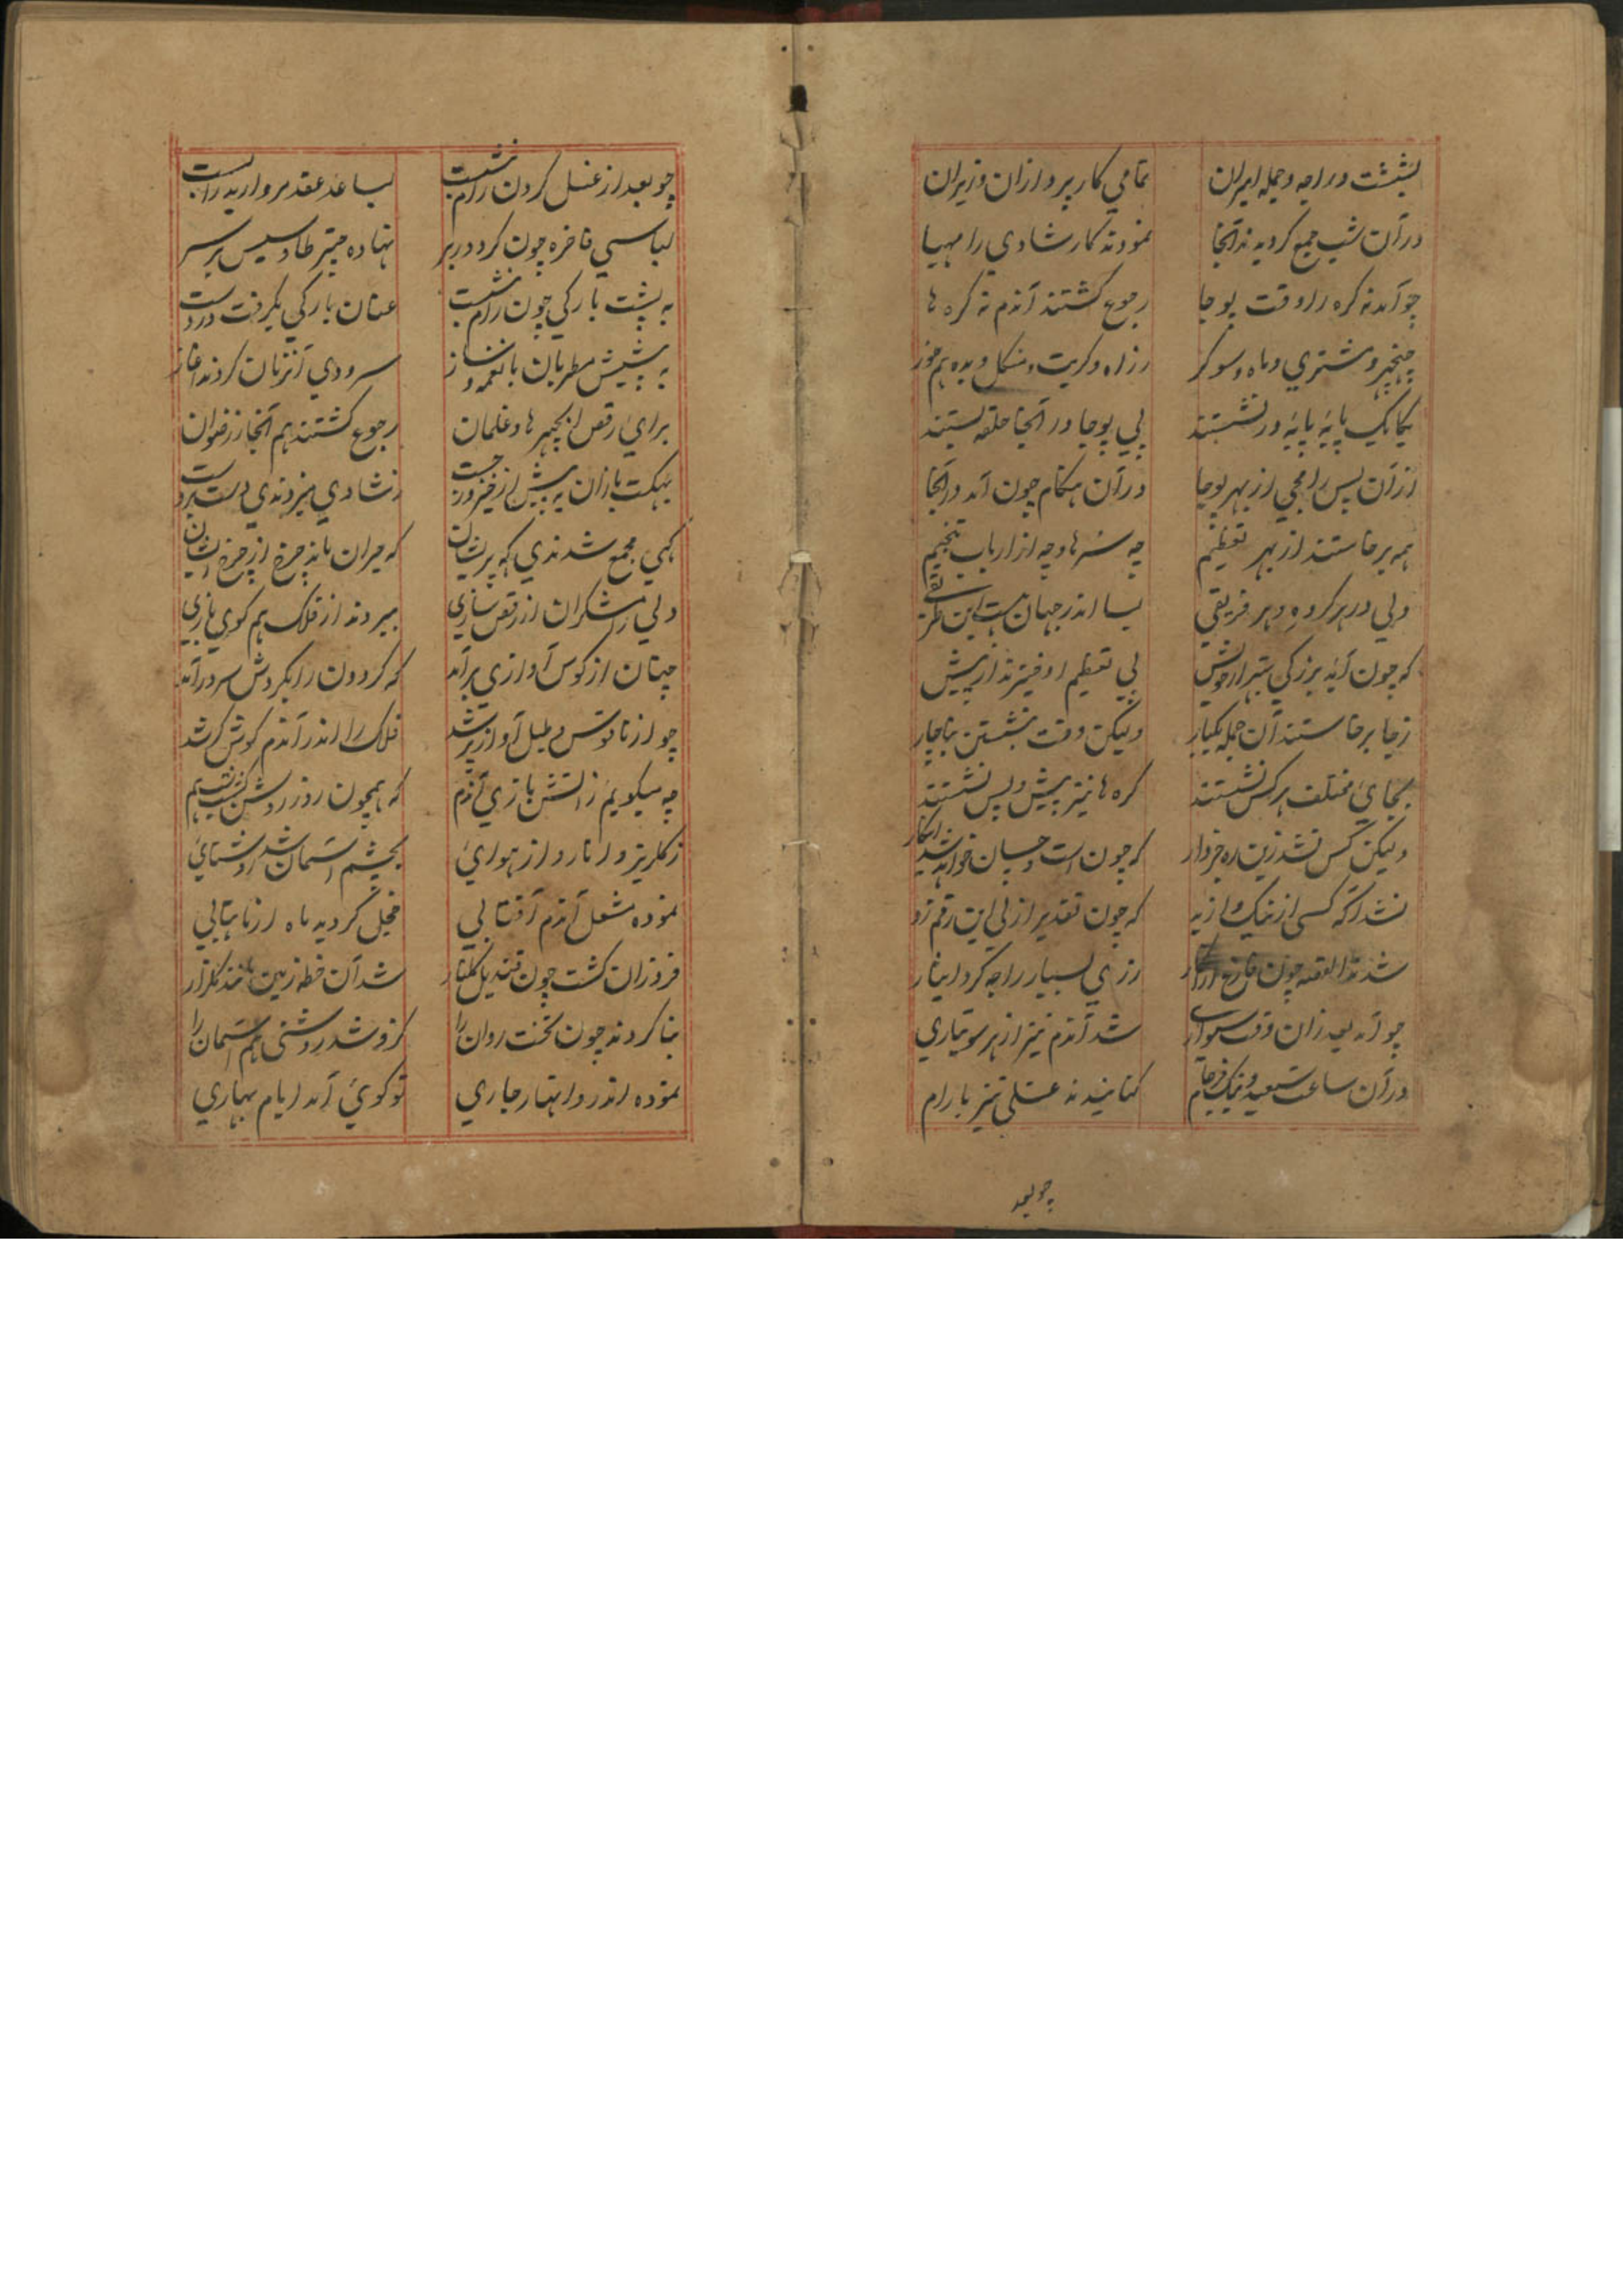 بشبشت و راجه و جمله امیران تمامی کار پردازان وزیران
در آن شب جمع گردیدند آنجا نمودند کار شادی را مهیا
چو آمد نه کره را وقت پوجا رجوع گشتند آندم نه کره ها
سنیچر و مشتری و ماه و سوکر و راه و کیت و منگل و بده هم خور
یکایک پایه پایه در نشستند پی پوجا در آنجا حلقه بستند
از آن پس رامجی از بهر پوجا در آن هنگام چون آمد در آنجا
همه برخاستند از بهر تعظیم چه سرها و چه از ارباب تنجیم
ولی در هر گروه و هر فریقی بسا اندر جهان هست این
که چون آید بزرگی بهتر از خویش پی تعظیم او خیزند از پیش
ز جا برخاستند آن جمله یکبار ولیکن وقت بنشستن بناچار
بجای مختلف هر کس نشستند کره ها نیز پیش و پس نشستند
ولیکن کس نشد زین ره خبردار که چون است و چسان خواهد شد
نشد آگه کسی از نیک و از بد که چون تقدیر ازلی این رقم زد
شدند القصه چون فارغ از آن کار زری بسیار راجه کرد ایثار
چو آمد بعد زان وقت سواری شد آندم نیز از هر سو تیاری
در آن ساعت سعید و نیک فرجام کنانیدند غسلی نیز با رام
چو بعد
چو بعد از غسل کردن رام بنشست بساعد عقد مروارید را بست
لباسی فاخره چون کرد در بر نهاده چتر طاوسیس بر سر
به پشت بارکی چون رام بنشست عنان بارکی بگرفت در دست
به پیشش مطربان با نغمه و ساز سرودی آنزمان کردند آغاز
برای رقص انچهرها و غلمان رجوع گشتند هم آنجا ز رضوان
بهکت بازان به پیش از ز شادی میزدندی دست بر دست
گهی مجمع شدندی گه پریشان که حیران ماند چرخ از چرخ ایشان
ولی رامشگران از رقص سازی ببردند از فلک هم گوی بازی
چنان از کوس آوازی برآمد که گردون را بگردش سر درآمد
چو از ناقوس و طبل آواز بر شد فلک را اندر آندم گوش کر شد
چه میگویم ز آتش بازی آندم که همچون روز روشن گشت شب هم
ز گلریز و انار و از هوایی بچشم آسمان شد روشنایی
نموده مشعل آندم آفتابی خجل گردید ماه از ماهتابی
فروزان گشت چون قندیل گلنار شد آن خطه زمین مانند گلزار
بنا کردند چون تخت روان را کزو شد روشنی هم آسمان را
نموده اندر و انهار جاری تو گویی آمد ایام بهاری